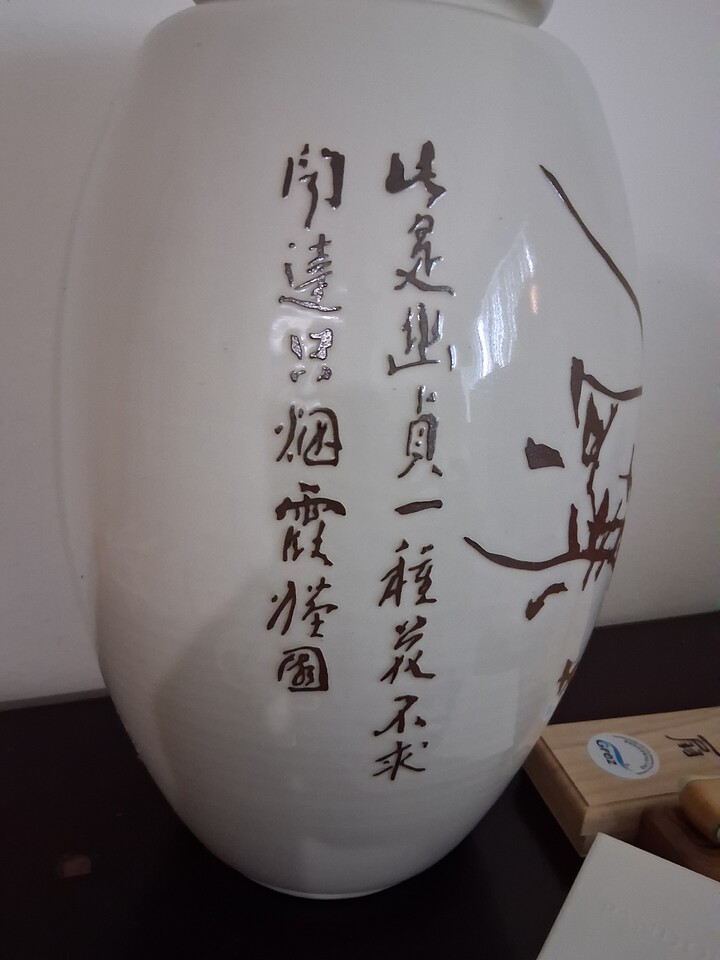 此是幽貞一種花不求
聞達只烟霞
扇
Grez